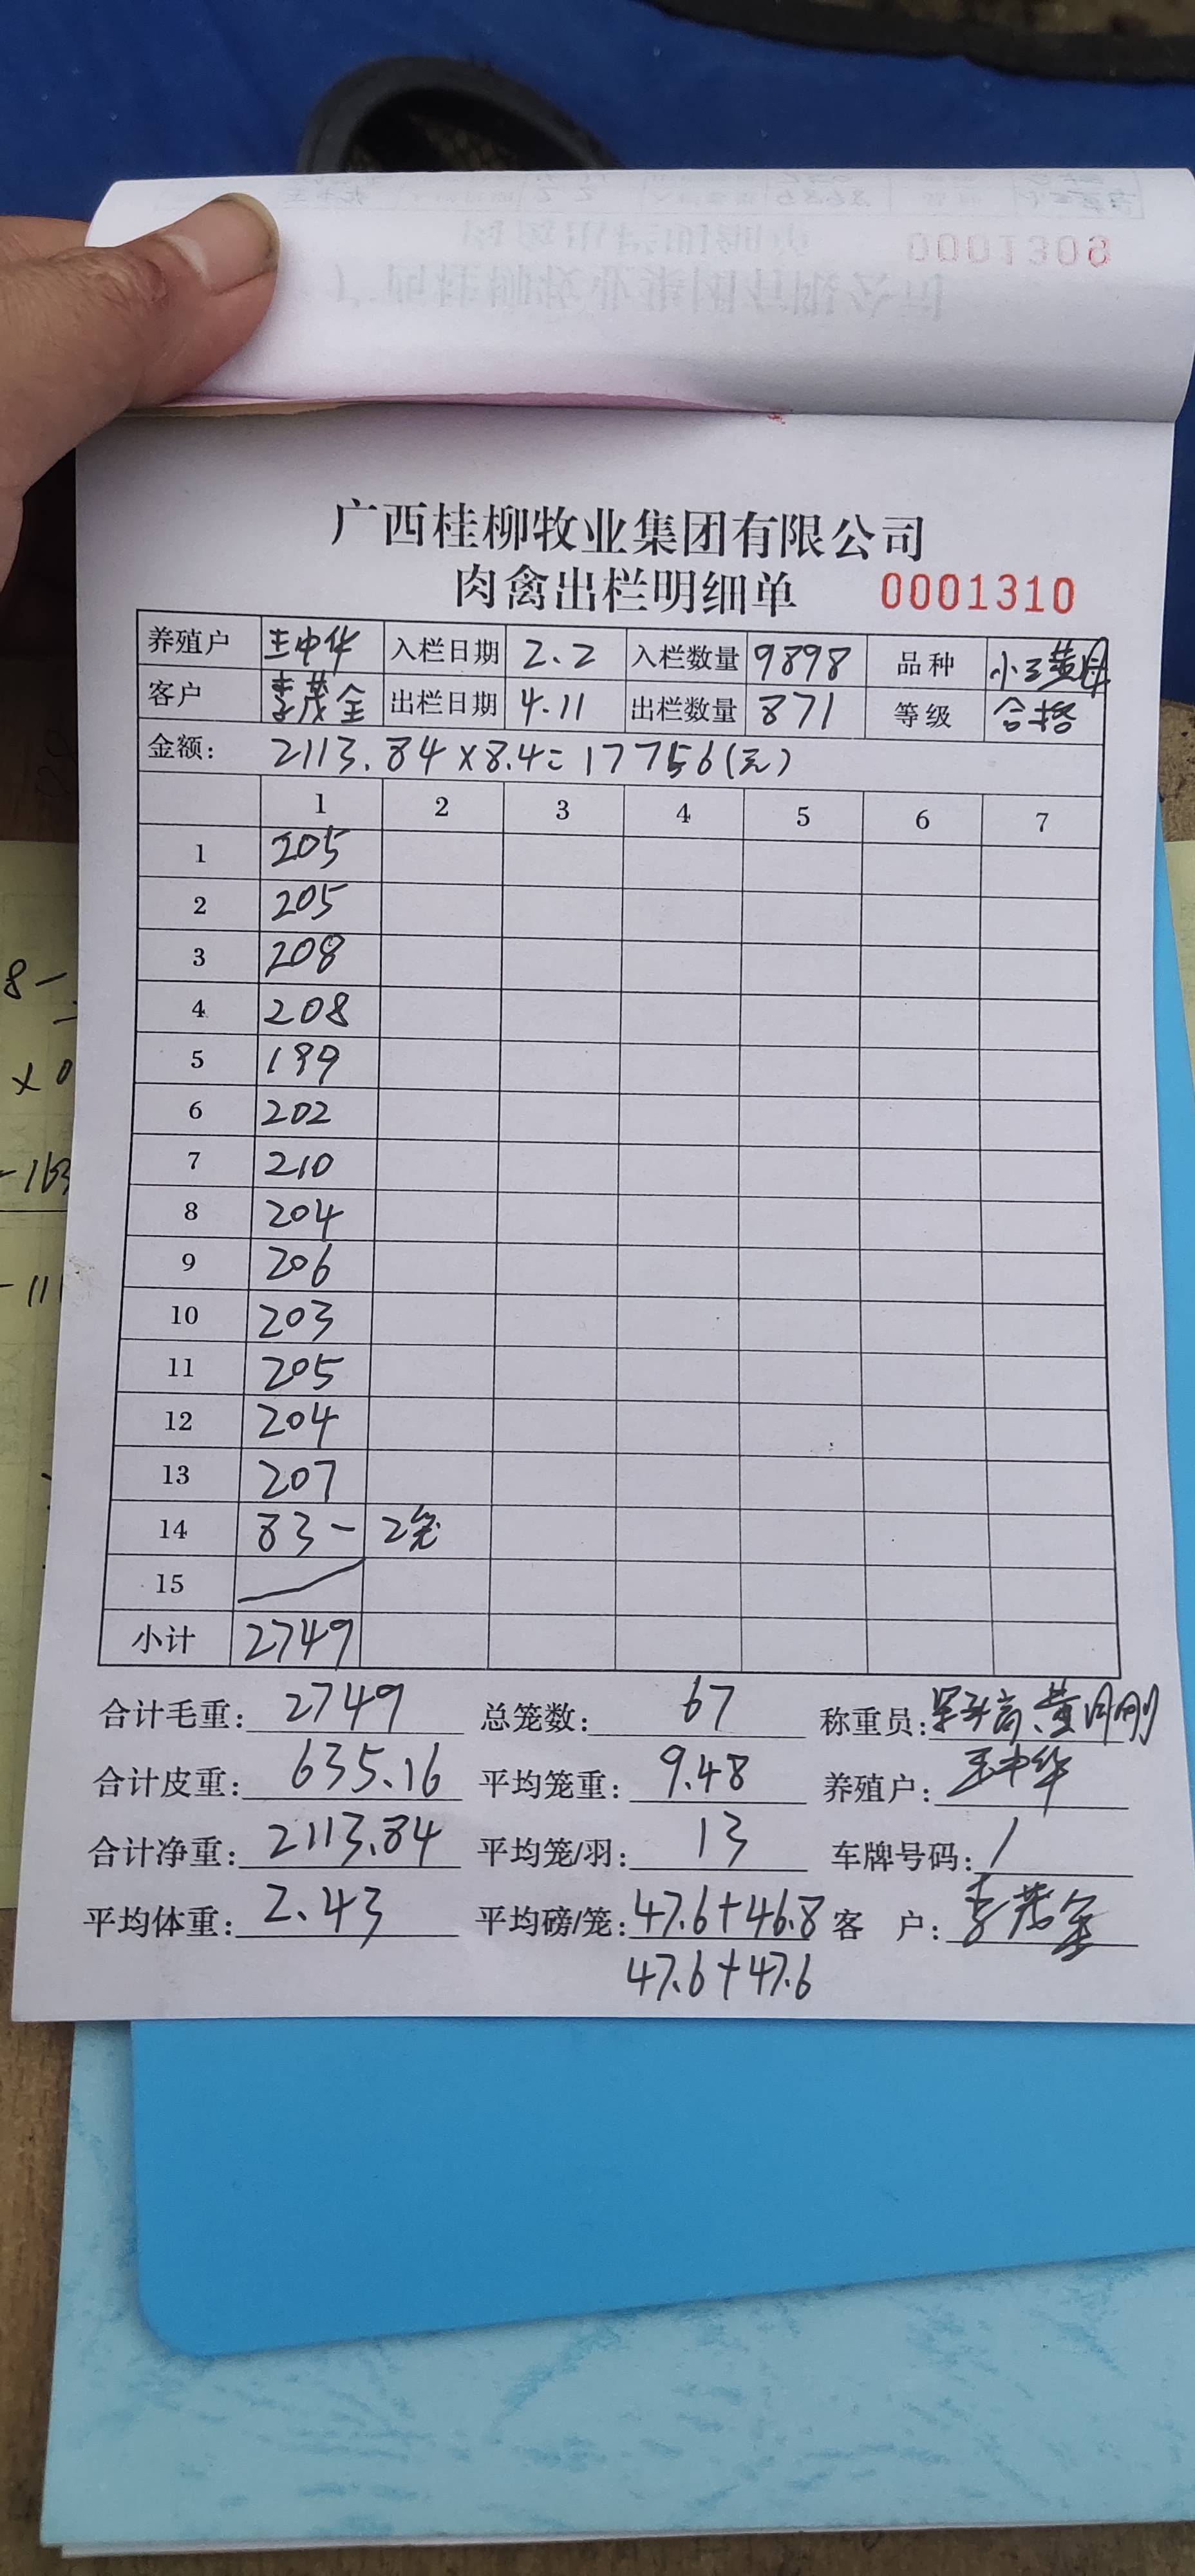 0001308
广西桂柳牧业集团有限公司
肉禽出栏明细单 0001310
养殖户 王中华 入栏日期 2.2 入栏数量 9898 品种 小三黄母
客户 李茂全 出栏日期 4.11 出栏数量 871 等级 合格
金额: 2113.84×8.4=17756(元)
1 2 3 4 5 6 7
1 205
2 205
3 208
4 208
5 199
6 202
7 210
8 204
9 206
10 203
11 205
12 204
13 207
14 83- 2笼
15
小计 2749
合计毛重: 2749 总笼数: 67 称重员: 黄月刚
合计皮重: 635.16 平均笼重: 9.48 养殖户: 王中华
合计净重: 2113.84 平均笼/羽: 13 车牌号码: /
平均体重: 2.43 平均磅/笼: 47.6+46.8 客 户: 李茂全
47.6+47.6
8-
×0
-163
-111